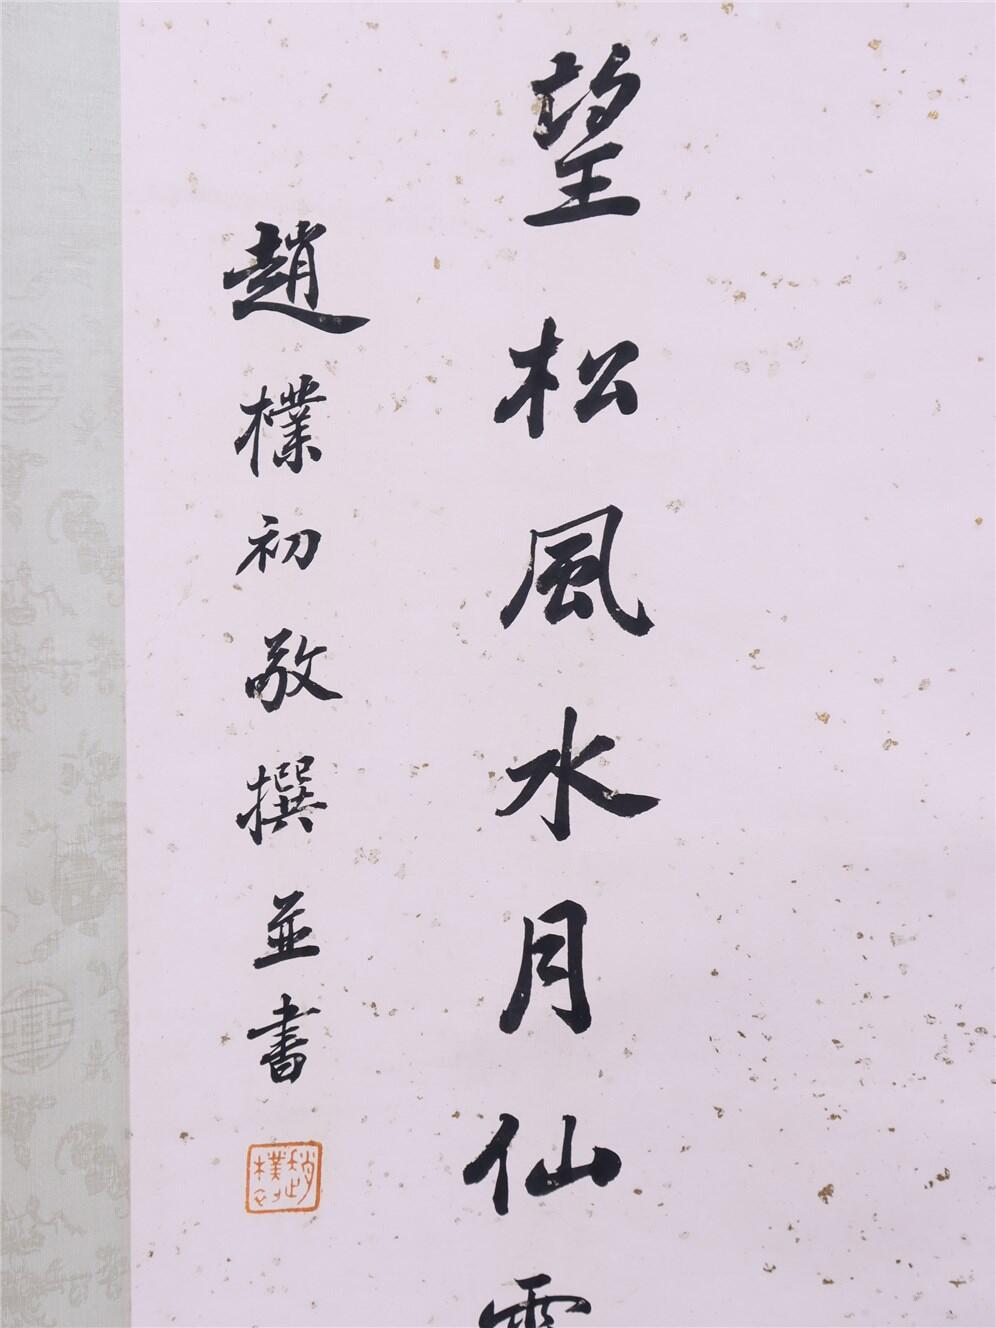 望松風水月仙
趙樸初敬撰並書
趙樸初